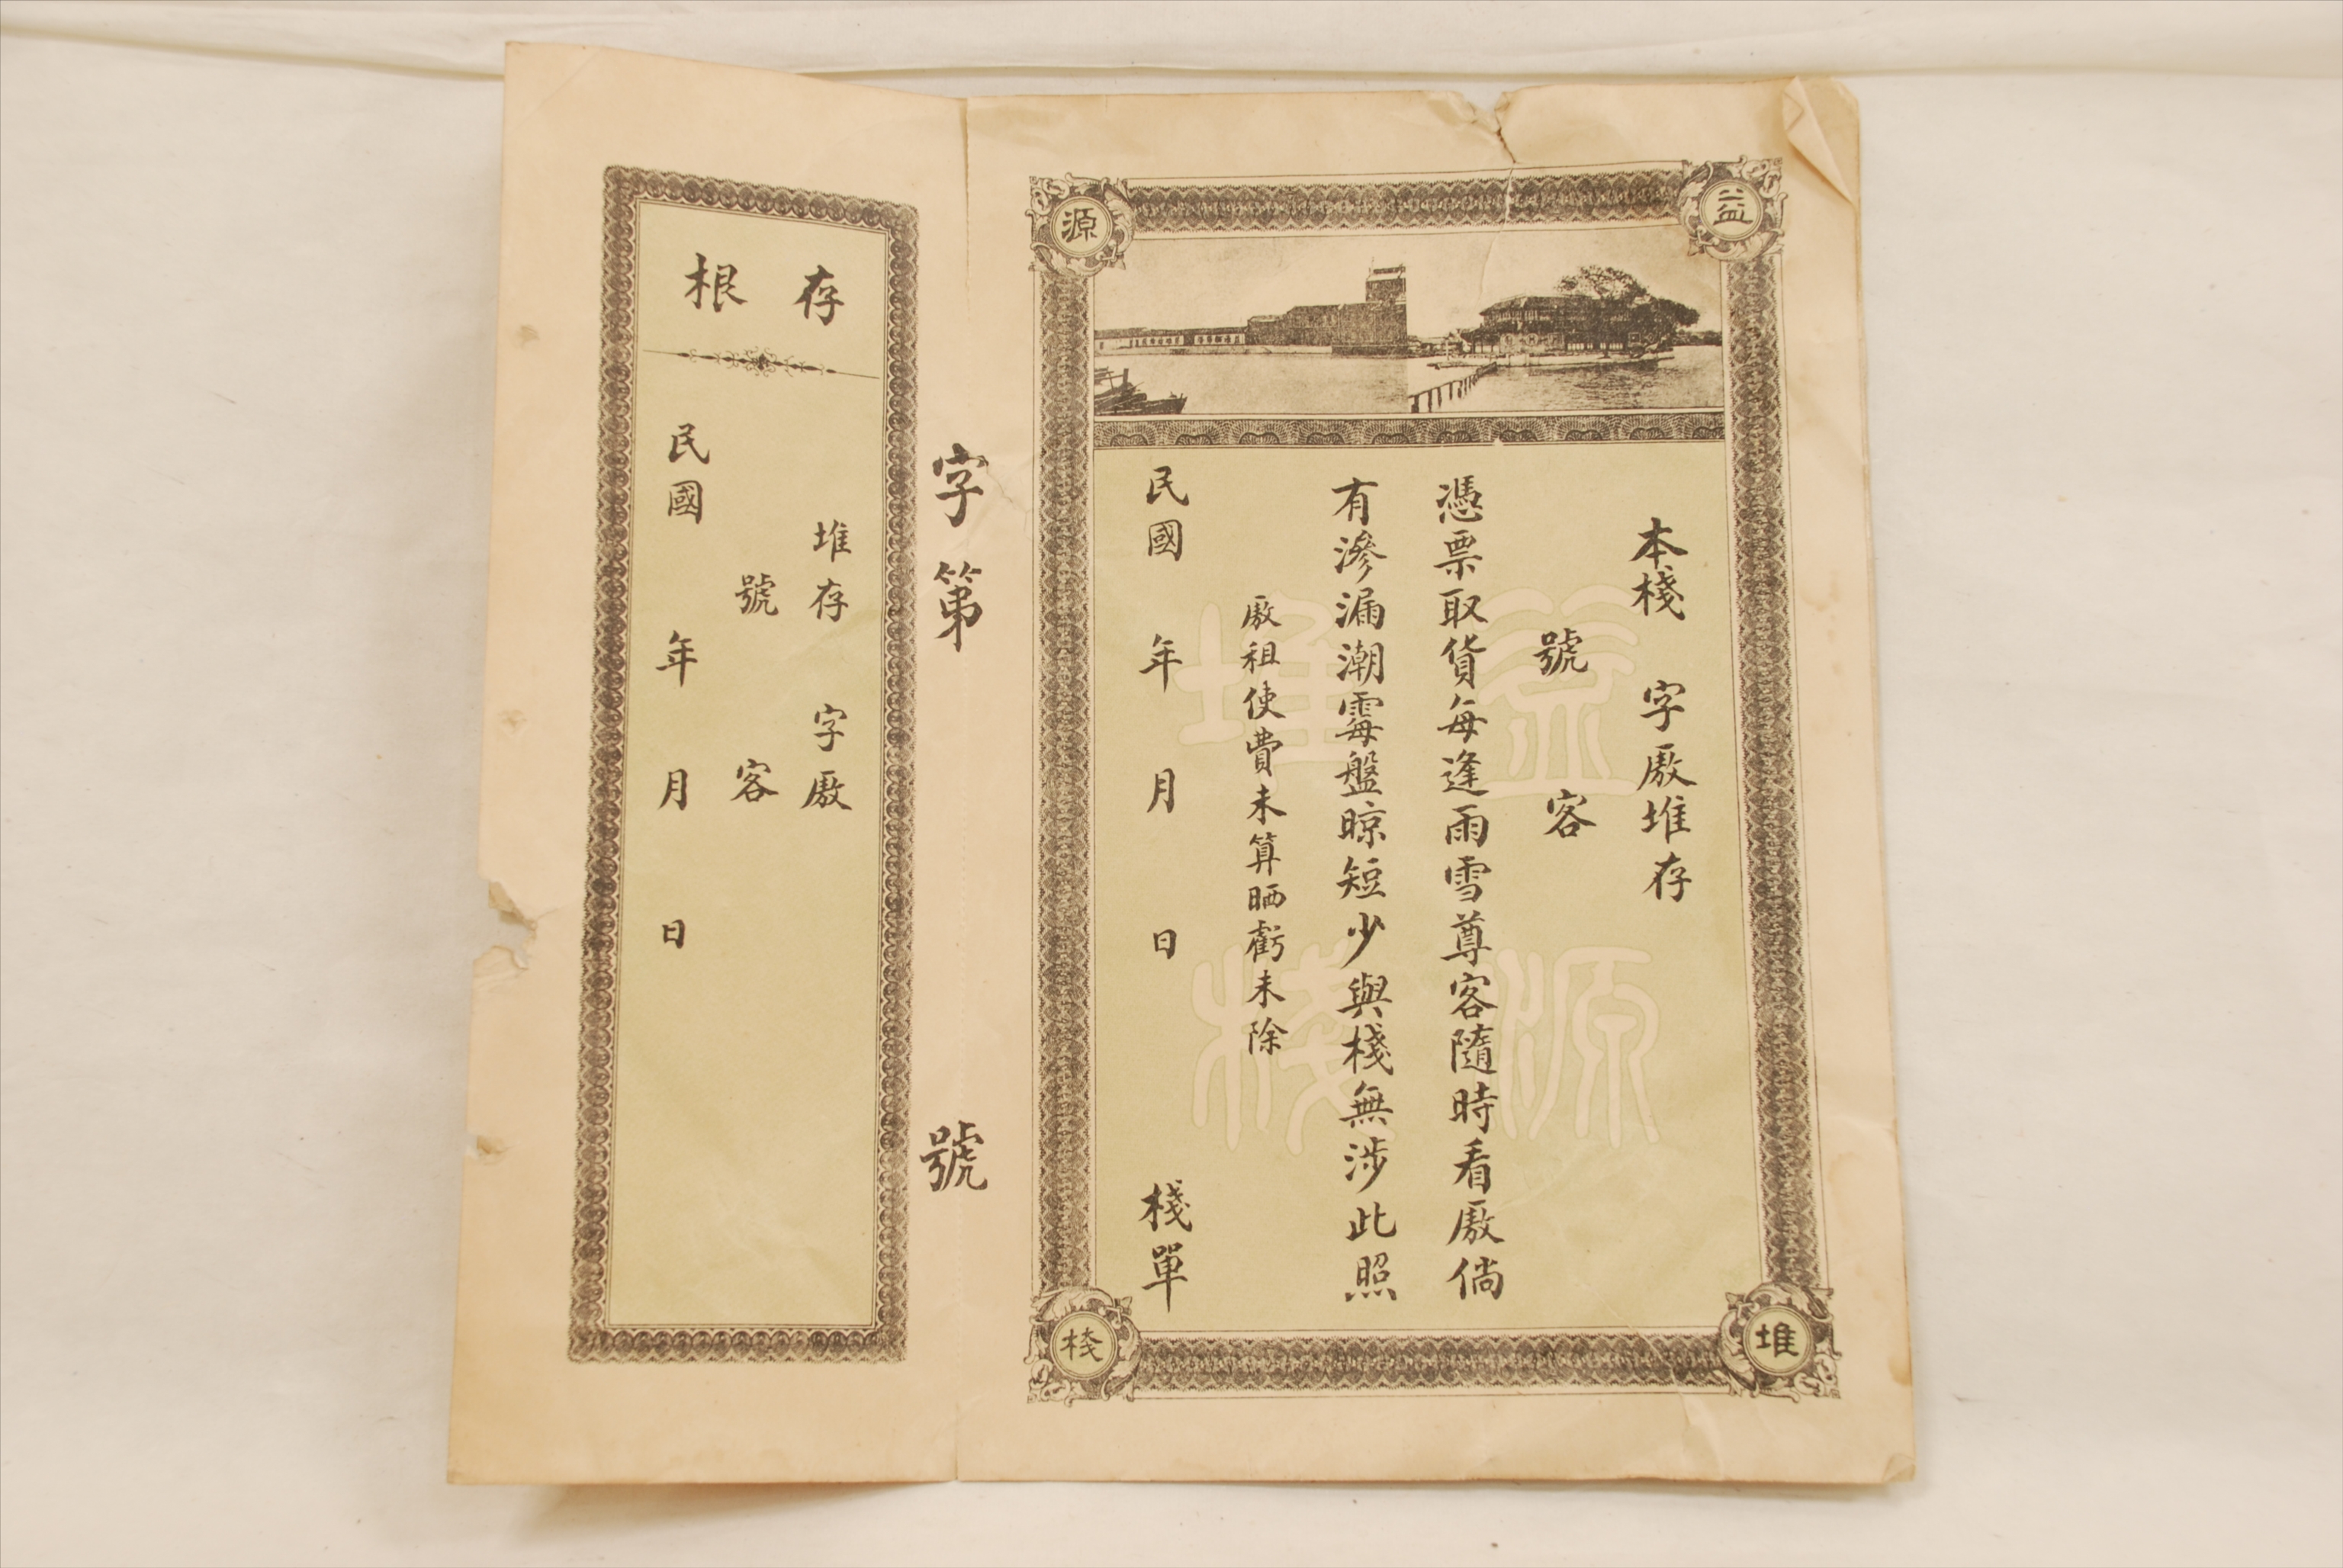 益源堆棧
本棧 字廒堆存
號 客
憑票取貨每逢雨雪尊客隨時看廒倘
有滲漏潮霉盤晾短少與棧無涉此照
廒租使費未算晒虧未除
民國 年 月 日 棧單
益源堆棧
字第 號
存根
堆存 字廒
號 客
民國 年 月 日